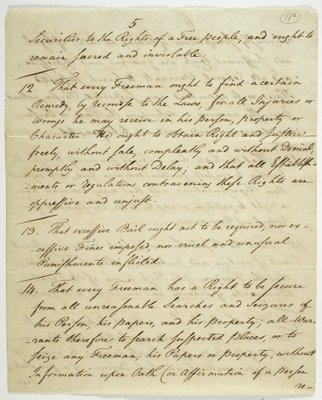 5
Securities to the Rights of a Free People, and ought to
remain sacred and inviolable.
12. That every Freeman ought to find a certain
Remedy by recourse to the Laws, for all Injuries or
wrongs he may receive in his person, property or
Character: He ought to obtain Right and Justice
freely, without sale, compleatly and without Denial,
promptly and without Delay; and that all Establish-
ments or regulations contravening these Rights are
oppressive and unjust.
13. That excessive Bail ought not to be required, nor ex-
cessive Fines imposed, nor cruel and unusual
Punishments inflicted.
14. That every Freeman has a Right to be secure
from all unreasonable Searches and Seizures of
his Person, his Papers, and his Property; all War-
rants therefore to search suspected Places, or to
seize any Freeman, his Papers or Property, without
Information upon Oath (or Affirmation of a Person